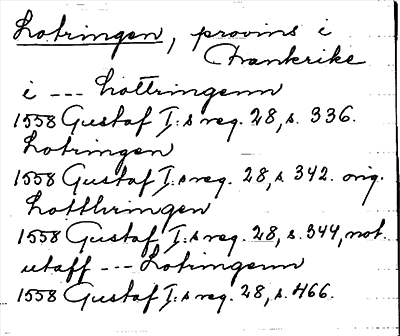 Lotringen, provins i
Frankrike
i --- Lottringenn
1558 Gustaf I:s reg. 28, s. 336.
Lotringen
1558 Gustaf I:s reg. 28, s. 342. orig.
Lotthringen
1558 Gustaf I:s reg. 28, s. 344, not.
utaff --- Lotringenn
1558 Gustaf I:s reg. 28, s. 466.